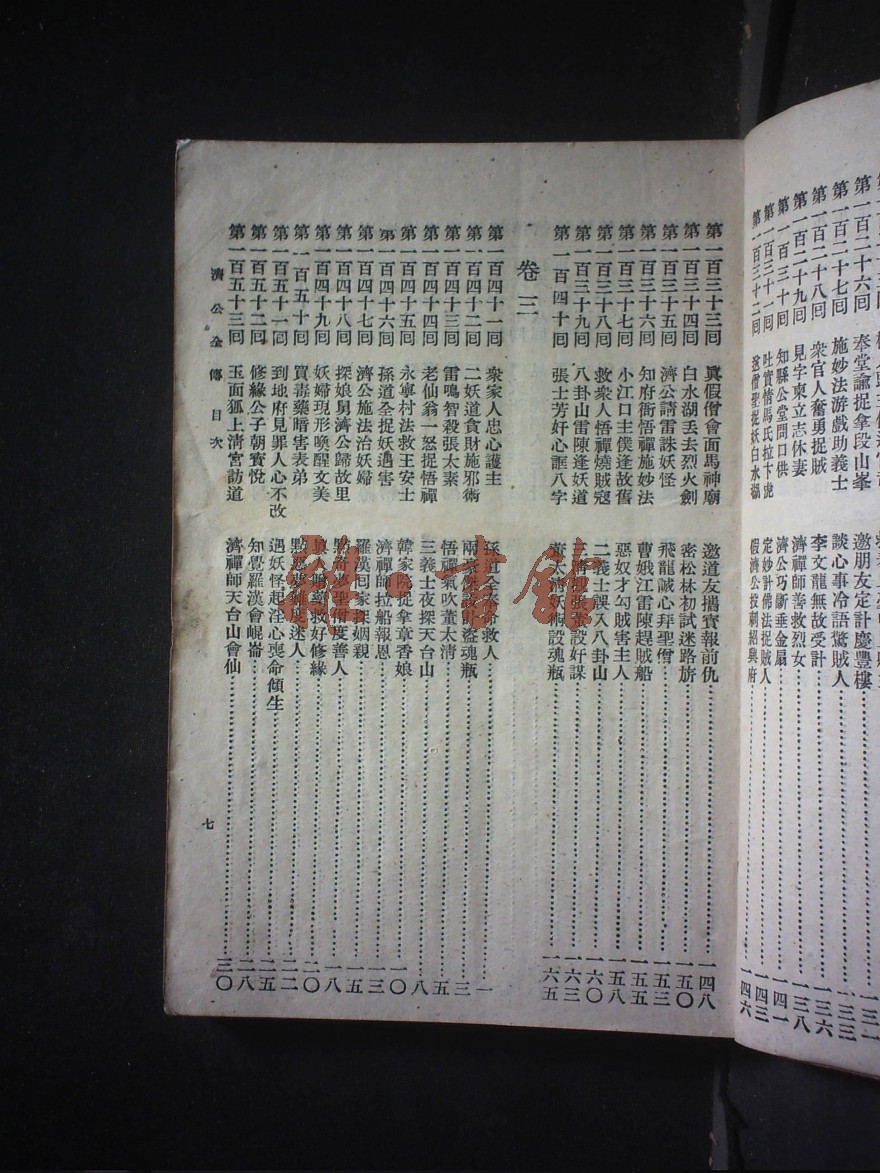 奉堂諭捉拿段山峯 邀朋友定計慶豐樓
第一百二十七回 施妙法游戲助義士 談心事冷語驚賊人 一三三
第一百二十八回 衆官人奮勇捉賊 李文龍無故受計 一三六
第一百二十九回 見字柬立志休妻 濟禪師善救烈女 一三八
第一百三十回 知縣公堂問口供 濟公巧斷垂金扇 一四一
第一百三十一回 吐實情馬氏拉下虎 定妙計佛法捉賊人 一四三
第一百三十二回 逖僧聖捉妖白水湖 假濟公投刺紹興府 一四六
第一百三十三回 眞假僧會面馬神廟 邀道友攜寶報前仇 一四八
第一百三十四回 白水湖丟去烈火劍 密松林初試迷路旂 一五〇
第一百三十五回 濟公請雷誅妖怪 飛龍誠心拜聖僧 一五三
第一百三十六回 知府衙悟禪施妙法 曹娥江雷陳趕賊船 一五五
第一百三十七回 小江口主僕逢故舊 惡奴才勾賊害主人 一五八
第一百三十八回 救衆人悟禪燒賊寇 二義士誤入八卦山 一六〇
第一百三十九回 八卦山雷陳逢妖道 設奸謀 一六三
第一百四十回 張士芳好心誆八字 董太清妖術設魂瓶 一六五
卷三
第一百四十一回 衆家人忠心護主 孫道全奉命救人 一
第一百四十二回 二妖道貪財施邪術 兩設計盜魂瓶 三
第一百四十三回 雷鳴智殺張太素 悟禪氣吹董太清 五
第一百四十四回 老仙翁一怒捉悟禪 三義士夜探天台山 八
第一百四十五回 永寧村法救王安士 韓家院捉拿章香娘 一〇
第一百四十六回 孫道全捉妖遇害 濟禪師拉船報恩 一三
第一百四十七回 濟公施法治妖婦 羅漢回家探姻親 一五
第一百四十八回 探娘舅濟公歸故里 點奇夢聖僧度善人 一八
第一百四十九回 妖婦現形喚醒文美 藥救好修緣 二〇
第一百五十回 買毒藥暗害表弟 點惡夢難度迷人 二二
第一百五十一回 到地府見罪人心不改 遇妖怪起淫心喪命傾生 二五
第一百五十二回 修緣公子朝寳悅 知覺羅漢會崐崙 二八
第一百五十三回 玉面狐上清宮訪道 濟禪師天台山會仙 三〇
濟公全傳 目次
七